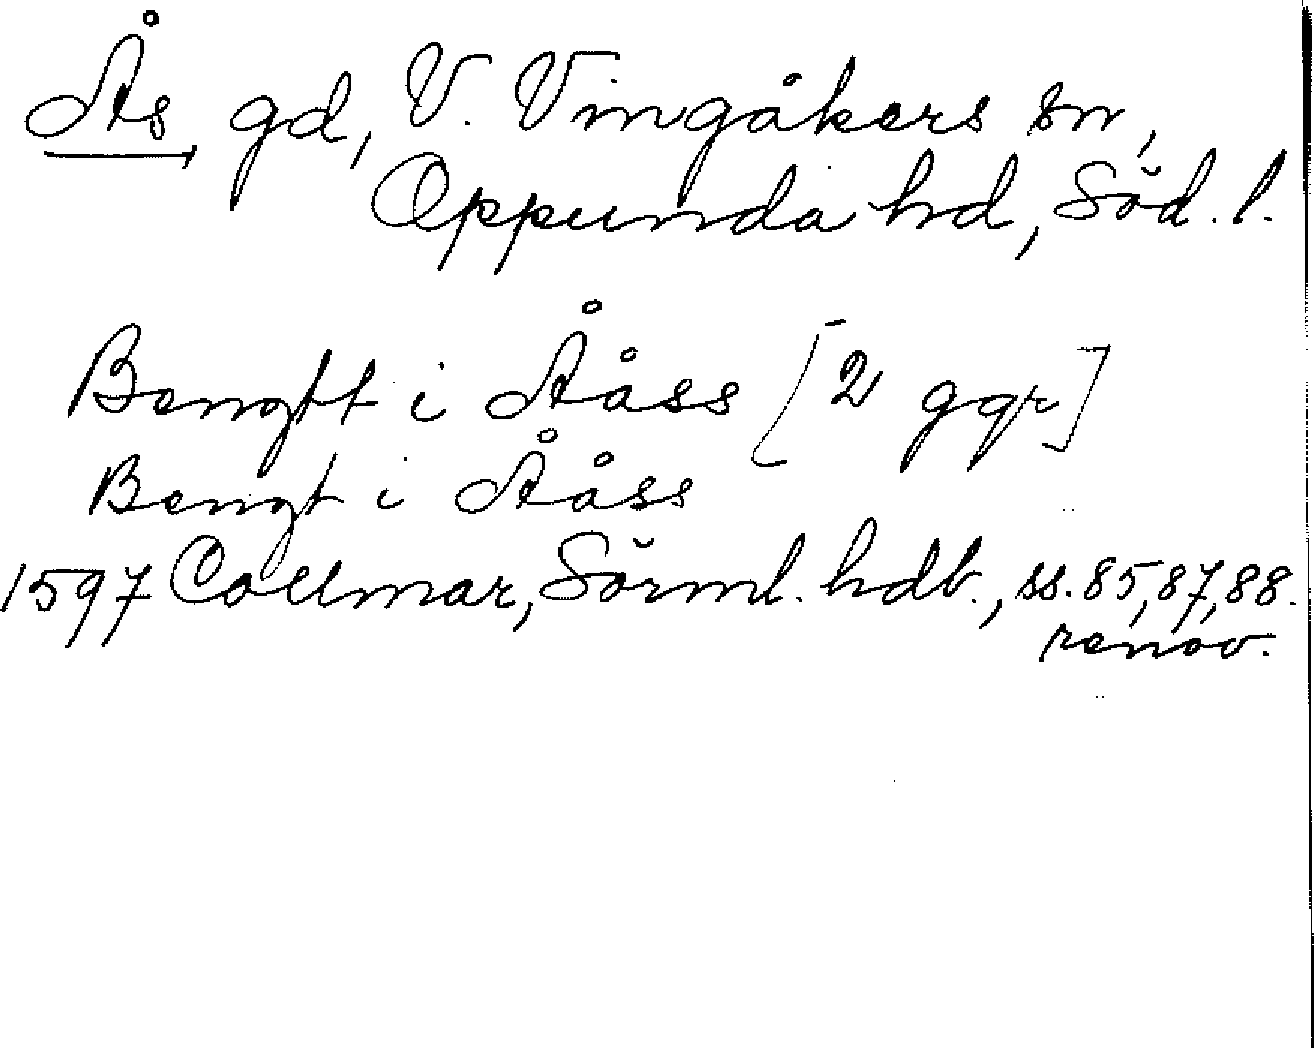 Ås gd, V. Vingåkers sn,
Oppunda hd, Söd. l.
Bengtt i Ååss [2 ggr]
Bengt i Ååss
1597 Collmar, Sörml. hdb., ss. 85, 87, 88.
renov.